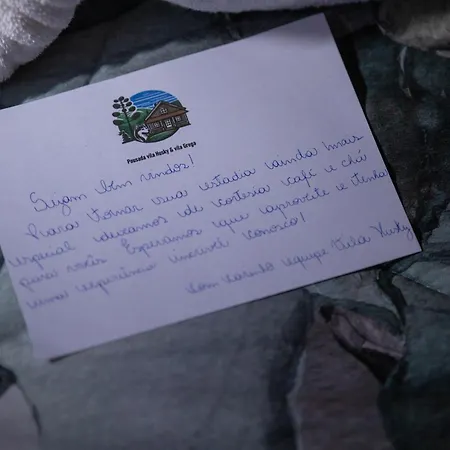 Pousada vila Husky & vila Grega
Sejam bem vindos!
Para tornar sua estadia ainda mais
especial deixamos de cortesia café e chá
para vocês. Esperamos que aproveite e tenha
uma experiência incrível conosco!
Com carinho equipe Vila Husky